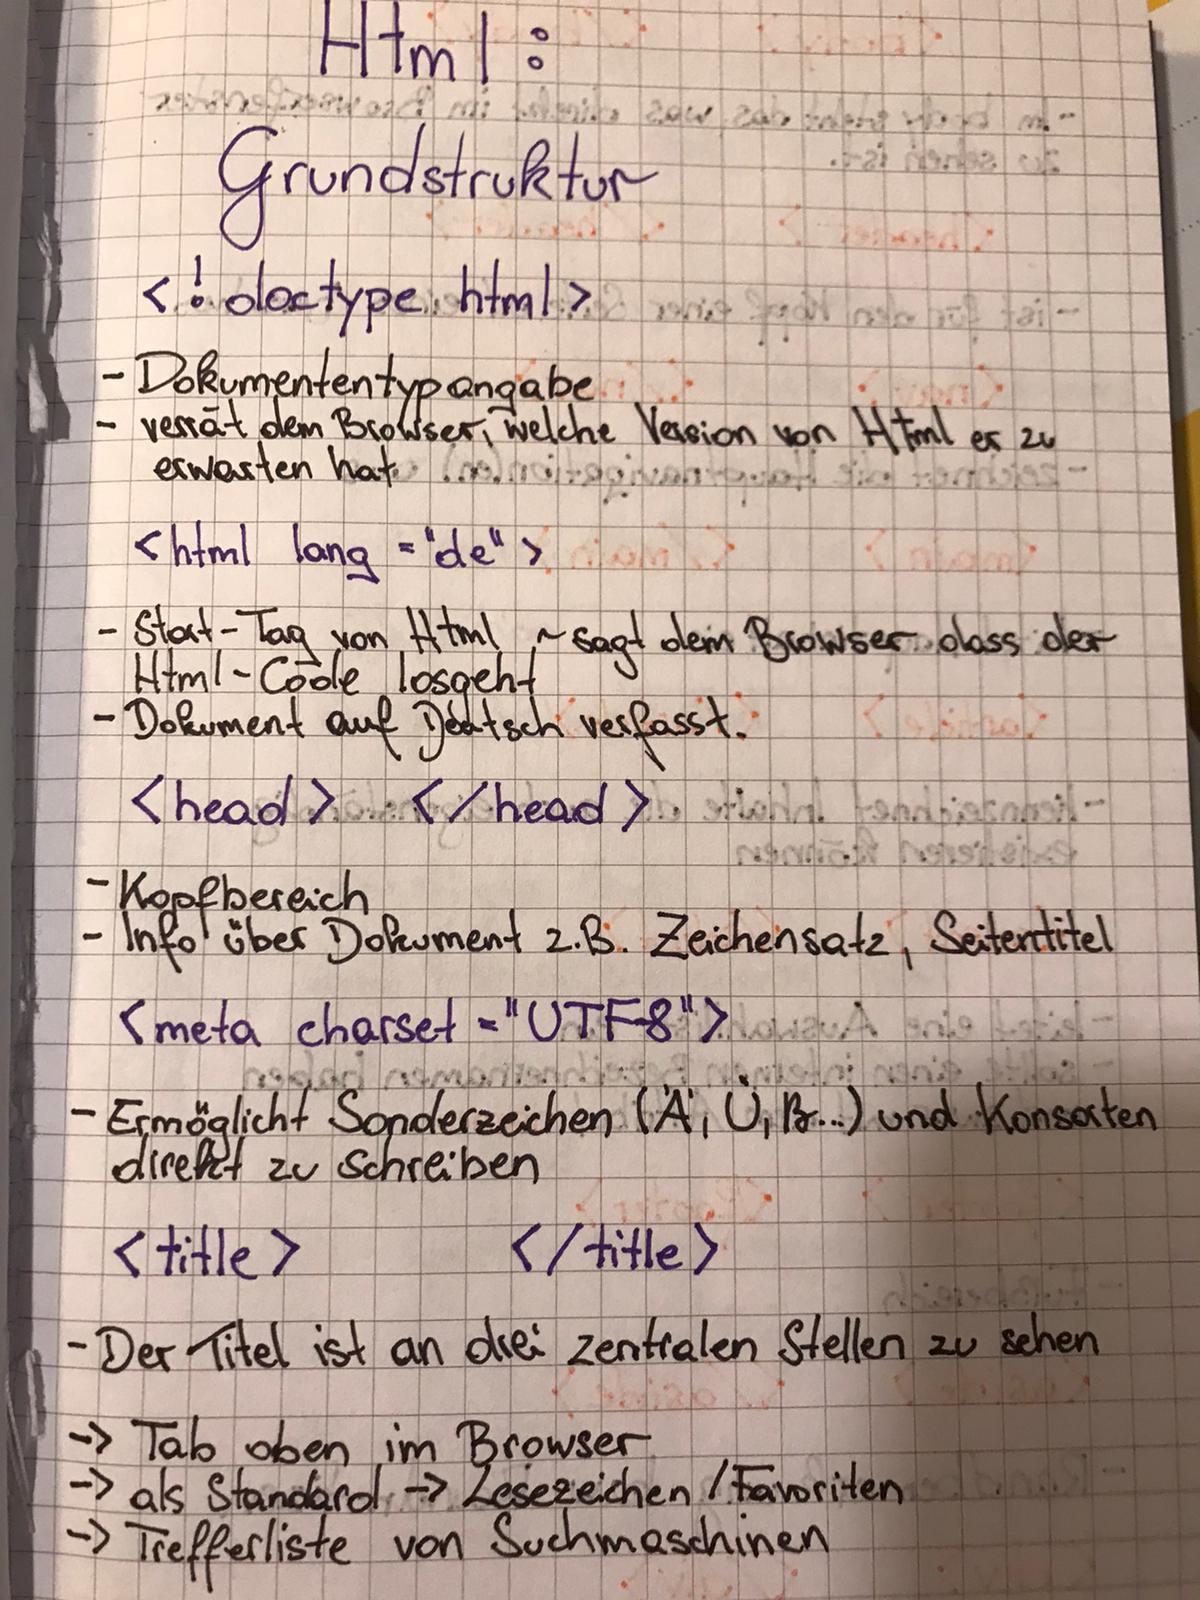 Html:
Grundstruktur
<!doctype html>
- Dokumententypangabe
- verrät dem Browser, welche Version von Html er zu
erwarten hat
<html lang="de">
- Start-Tag von Html ~sagt dem Browser dass der
Html-Code losgeht
- Dokument auf Deutsch verfasst.
<head> </head>
- Kopfbereich
- Info über Dokument z.B. Zeichensatz, Seitentitel
<meta charset="UTF-8">
- Ermöglicht Sonderzeichen (Ä, Ü, ß...) und Konsorten
direkt zu schreiben
<title> </title>
- Der Titel ist an drei zentralen Stellen zu sehen
-> Tab oben im Browser
-> als Standard -> Lesezeichen/Favoriten
-> Trefferliste von Suchmaschinen